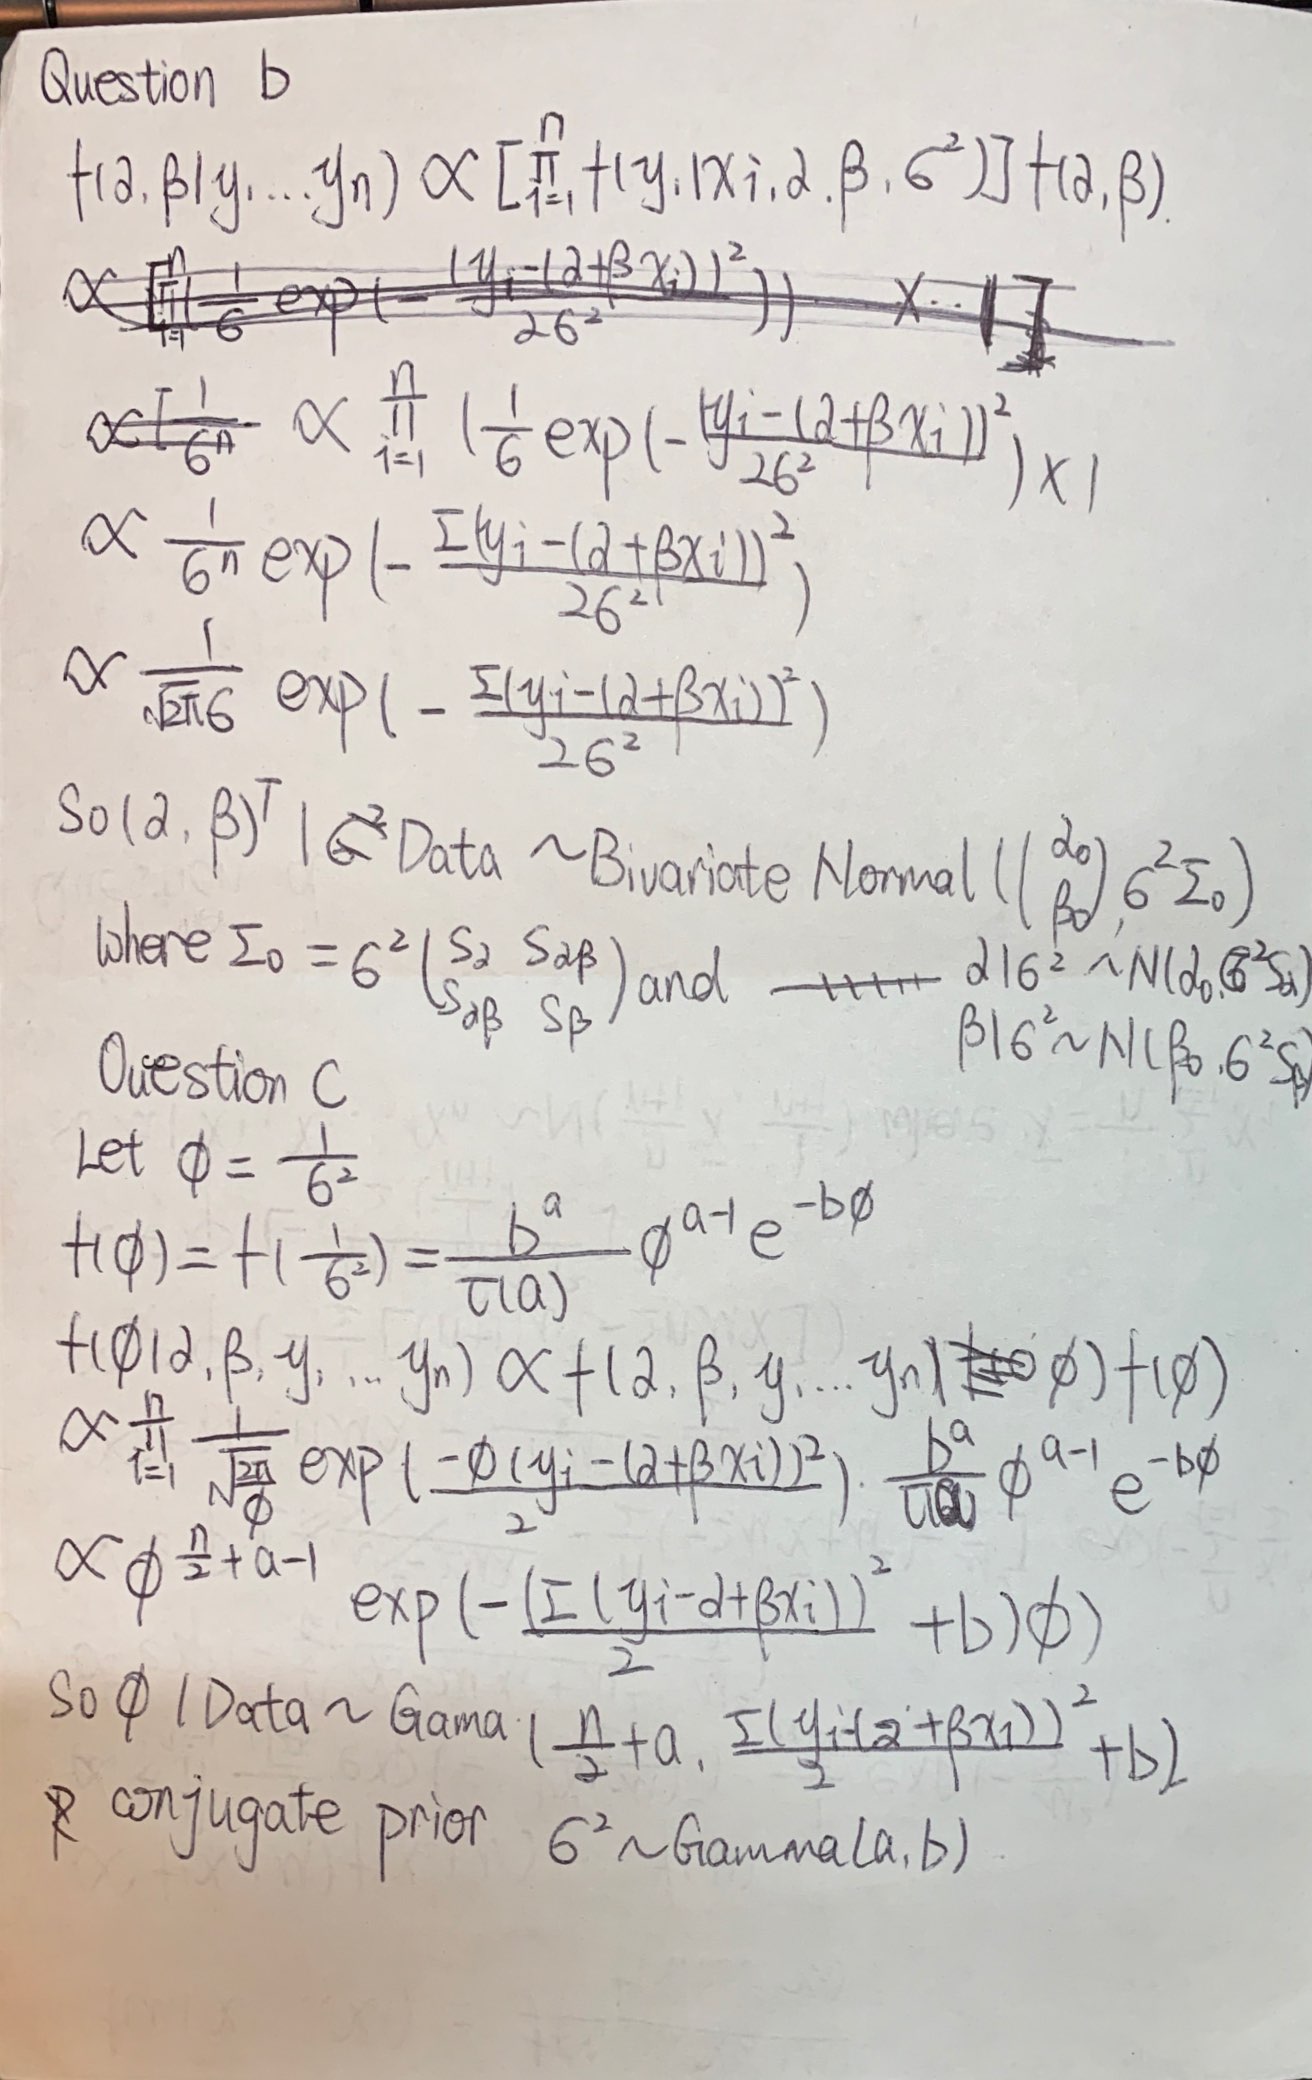 Question b
f(α, β|y, ... yn) ∝ [∏_{i=1}^{n} f(y, |xi, α, β, σ²)] f(α, β).
∝ [∏_{i=1}^{n} (1/σ exp(- (yi-(α+βxi))²/2σ²)) × ·· 1]
∝ [1/σⁿ ∝ ∏_{i=1}^{n} (1/σ exp(- (yi-(α+βxi))²/2σ²) × 1
∝ 1/σⁿ exp(- Σ(yi-(α+βxi))²/2σ²)
∝ 1/√2π σ exp(- Σ(yi-(α+βxi))²/2σ²)
So (α, β)ᵀ | σ² Data ~ Bivariate Normal ((α₀ β₀), σ²Σ₀)
where Σ₀ = σ² (Sα Sαβ
Sαβ Sβ) and α|σ² ~ N(α₀, σ²Sα)
β|σ² ~ N(β₀, σ²Sβ)
Question C
Let φ = 1/σ²
f(φ) = f(1/σ²) = bᵃ/τ(a) φᵃ⁻¹ e⁻ᵇᵠ
f(φ|α, β, y, ... yn) ∝ f(α, β, y, ... yn| φ) f(φ)
∝ ∏_{i=1}^{n} 1/√(2π/φ) exp(-φ(yi-(α+βxi))²/2) · bᵃ/τ(a) φᵃ⁻¹ e⁻ᵇᵠ
∝ φ^{n/2+a-1} exp(-(Σ(yi-α+βxi))²/2 +b)φ)
So φ | Data ~ Gama (n/2+a, Σ(yi-(α+βxi))²/2 +b)
conjugate prior σ² ~ Gamma(a, b)